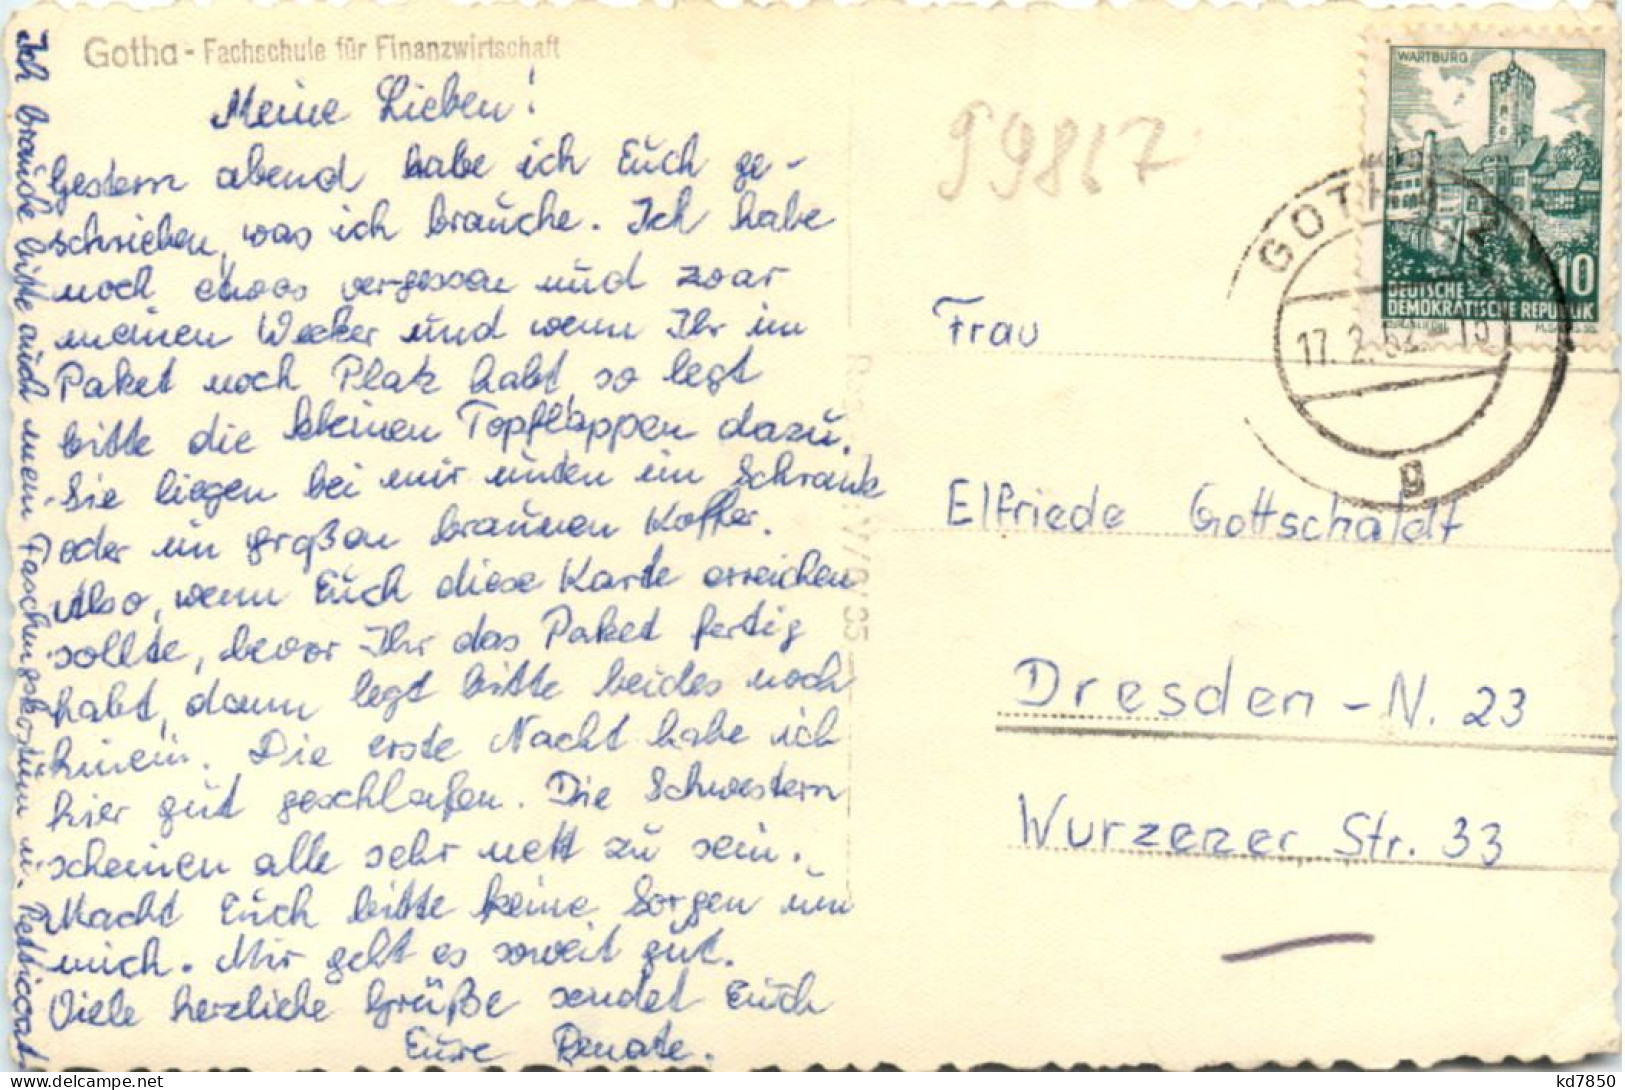 Gotha - Fachschule für Finanzwirtschaft
Meine Lieben!
Gestern abend habe ich Euch ge-
schrieben, was ich brauche. Ich habe
noch etwas vergessen und zwar
meinen Wecker und wenn Ihr im
Paket noch Platz habt so legt
bitte die kleinen Topflappen dazu.
Sie liegen bei mir unten im Schrank
oder im großen braunen Koffer.
Also, wenn Euch diese Karte erreichen
sollte, bevor Ihr das Paket fertig
habt, dann legt bitte beides noch
hinein. Die erste Nacht habe ich
hier gut geschlafen. Die Schwestern
scheinen alle sehr nett zu sein.
Macht Euch bitte keine Sorgen um
mich. Mir geht es soweit gut.
Viele herzliche Grüße sendet Euch
Eure Renate.
Ich brauche bitte auch mein Faschingskostüm u. Petticoat.
99817
WARTBURG
10
DEUTSCHE
DEMOKRATISCHE REPUBLIK
GOTHA 2
17. 2. 62
g
Frau
Elfriede Gottschaldt
Dresden - N. 23
Wurzener Str. 33
https://www.delcampe.net
kd7850